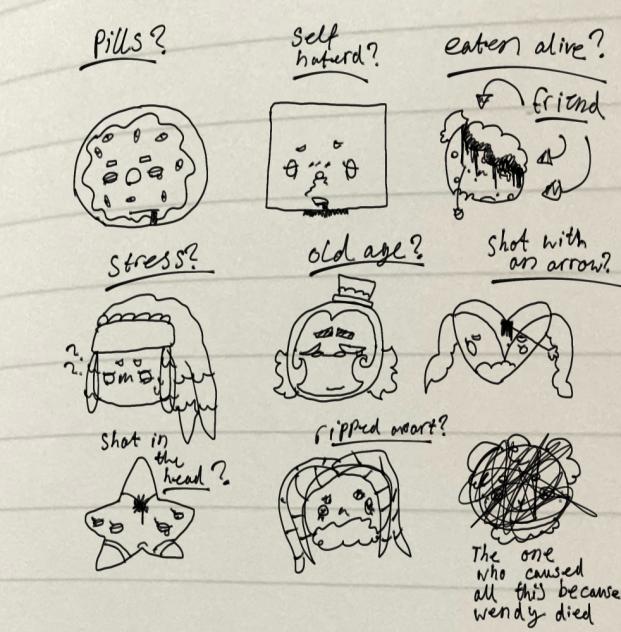 Pills?
self
haterd?
eaten alive?
friend
stress?
old age?
shot with
an arrow?
?
?
shot in
the
head?
ripped apart?
The one
who caused
all this because
wendy died